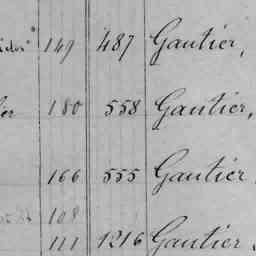 149 487 Gautier,
180 558 Gautier,
166 555 Gautier,
168
111 1216 Gautier